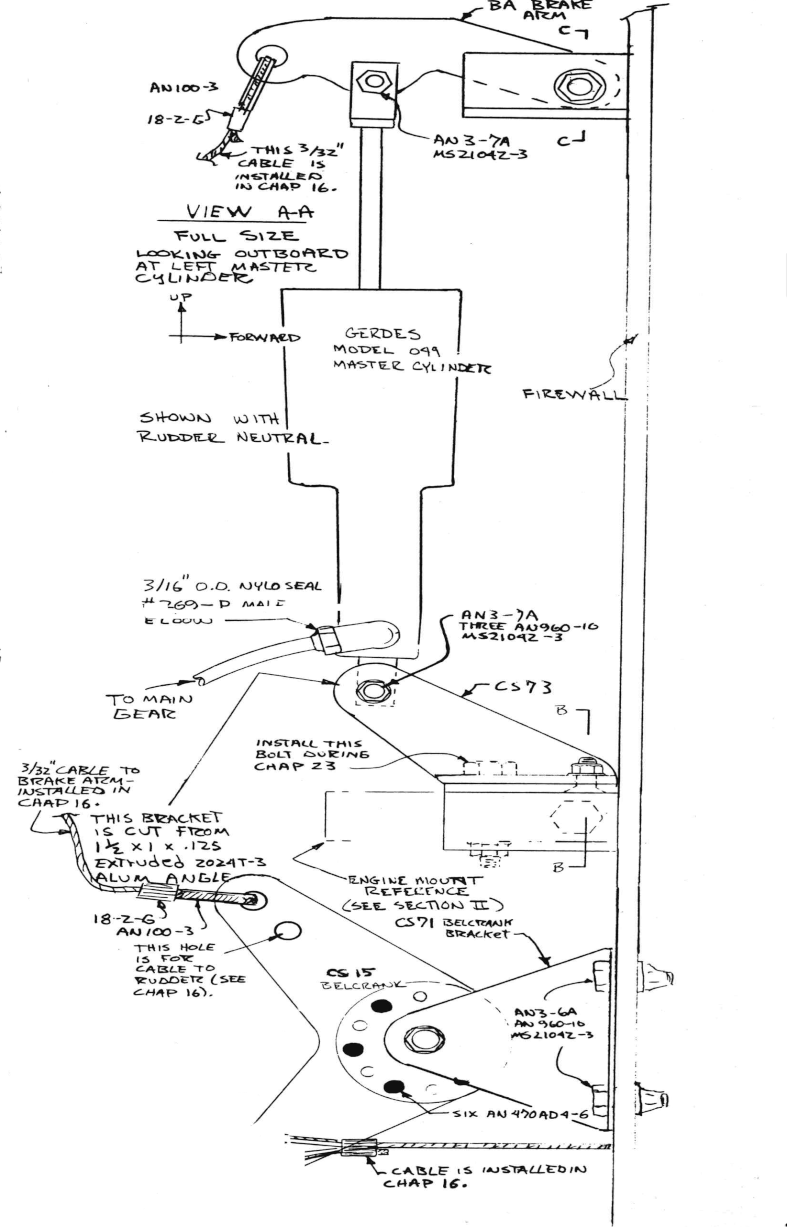 BA BRAKE
ARM
C
AN100-3
18-2-G
THIS 3/32"
CABLE IS
INSTALLED
IN CHAP 16.
AN3-7A
MS21042-3
C
VIEW A-A
FULL SIZE
LOOKING OUTBOARD
AT LEFT MASTER
CYLINDER
UP
FORWARD
GERDES
MODEL 099
MASTER CYLINDER
FIREWALL
SHOWN WITH
RUDDER NEUTRAL.
3/16" O.D. NYLOSEAL
#269-P MALE
ELBOW
AN3-7A
THREE AN960-10
MS21042-3
TO MAIN
GEAR
CS73
B
INSTALL THIS
BOLT DURING
CHAP 23
3/32" CABLE TO
BRAKE ARM-
INSTALLED IN
CHAP 16.
THIS BRACKET
IS CUT FROM
1½ x 1 x .125
EXTRUDED 2024T-3
ALUM ANGLE
B
ENGINE MOUNT
REFERENCE
(SEE SECTION II)
18-2-G
AN100-3
CS71 BELCRANK
BRACKET
THIS HOLE
IS FOR
CABLE TO
RUDDER (SEE
CHAP 16).
CS15
BELCRANK
AN3-6A
AN960-10
MS21042-3
SIX AN470AD4-6
CABLE IS INSTALLED IN
CHAP 16.